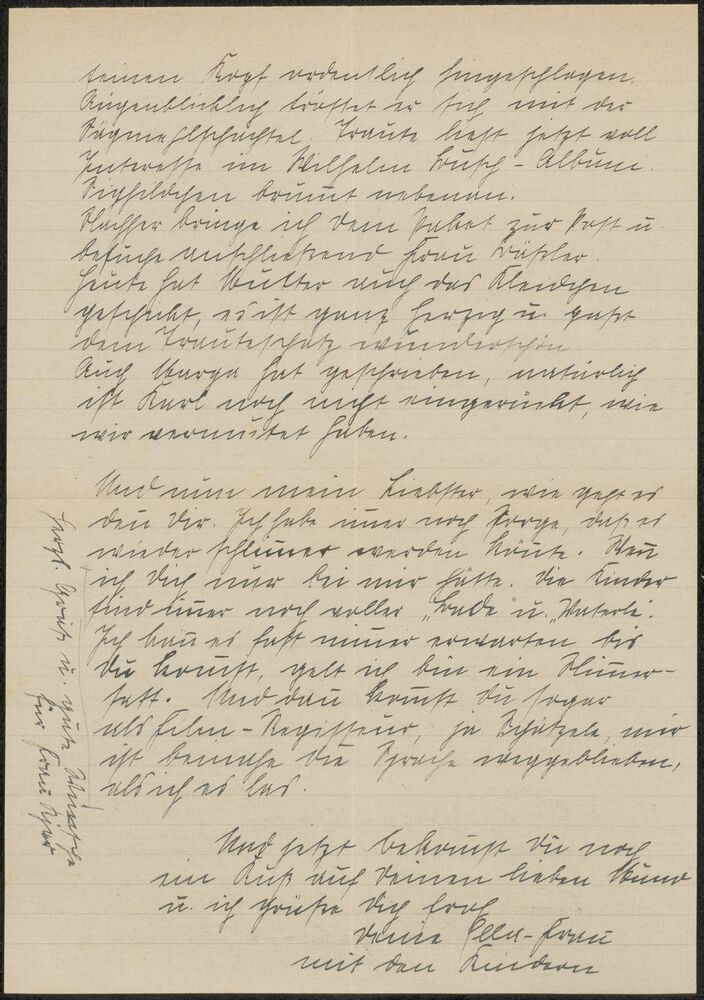 seinen Kopf ordentlich hingeschlagen.
Augenblicklich tröstet er sich mit der
Sägmehlschachtel. Traute liest jetzt voll
Interesse im Wilhelm Busch-Album.
Sighildchen brummt nebenan.
Nachher bringe ich Dein Paket zur Post u.
besuche anschließend Frau
Heute hat Mutter auch das Kleidchen
geschickt, es ist ganz herzig u. paßt
dem Trauteschatz wunderschön.
Auch Marga hat geschrieben, natürlich
ist Karl noch nicht eingerückt, wie
wir vermutet haben.
Und nun mein Liebster, wie geht es
den Dir. Ich habe imer noch Sorge, daß es
wieder schlimer werden könte. Wen
ich Dich nur bei mir hätte. Die Kinder
sind imer noch voller „Bade" u. „Vaterle".
Ich kan es fast nimer erwarten bis
Du komst, gelt ich bin ein Nimer-
satt. Und dan komst Du sogar
als Film-Regisseur, ja Schätzele, mir
ist beinahe die Sprache weggeblieben,
als ich es las.
Und jetzt bekomst Du noch
ein Kuß auf Deinen lieben Mund
u. ich grüße Dich froh
Deine Frau
mit den Kindern
Herzl. Grüße u. gute Wünsche
für Frau